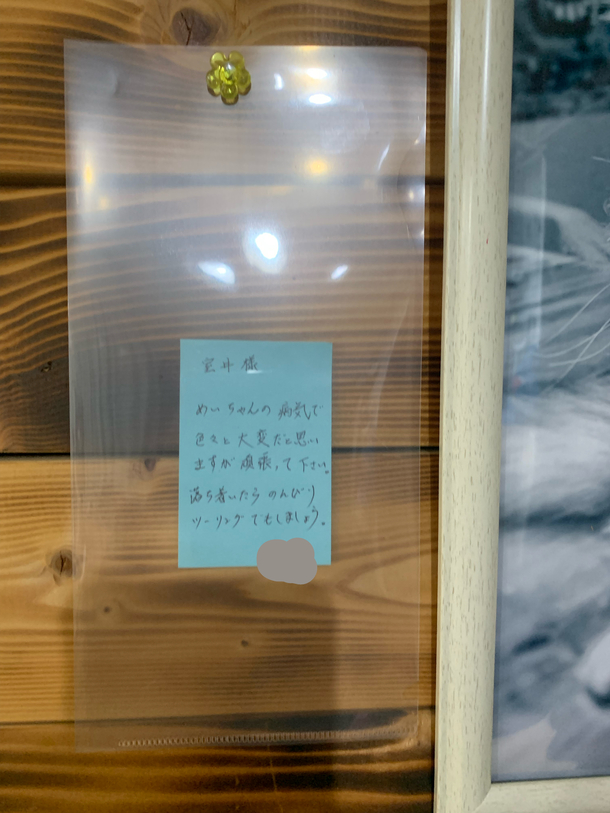 室井様
めいちゃんの病気で
色々と大変だと思い
ますが頑張って下さい。
落ち着いたらのんびり
ツーリングでもしましょう。